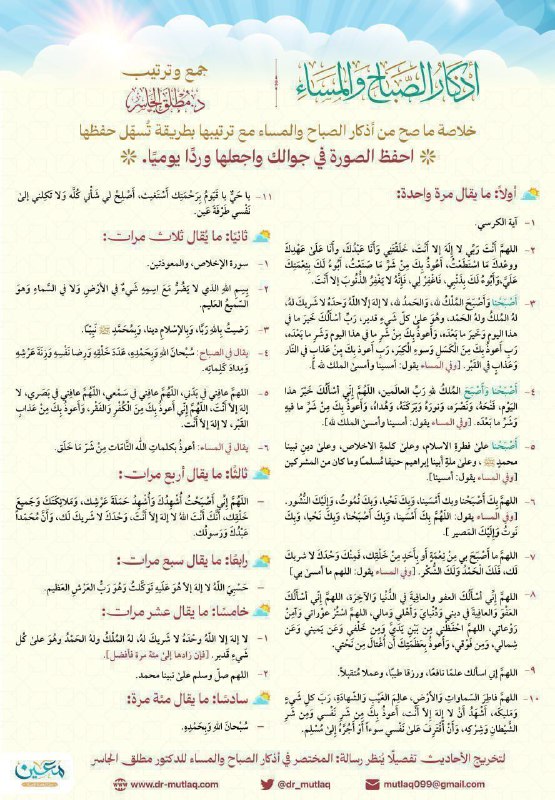 أذكار الصباح والمساء
جمع وترتيب
د. مطلق الجاسر
خلاصة ما صح من أذكار الصباح والمساء مع ترتيبها بطريقة تُسهّل حفظها
احفظ الصورة في جوالك واجعلها وردًا يوميًا.
أولاً: ما يقال مرة واحدة:
١- آية الكرسي.
٢- اللهم أَنْتَ رَبِّي لا إِلَهَ إِلا أَنْتَ، خَلَقْتَنِي وَأَنَا عَبْدُكَ، وأنَا عَلَىٰ عَهْدِكَ
ووعدك ما استَطَعْتُ، أَعُوذُ بِكَ مِنْ شَرِّ مَا صَنَعْتُ، أَبُوءُ لَكَ بِنِعْمَتِكَ
عَلَيَّ، وَأَبُوءُ لَكَ بِذَنْبِي، فَاغْفِرْ لِي، فَإِنَّهُ لا يَغْفِرُ الذُّنُوبَ إِلاَّ أَنْتَ.
٣- أَصْبَحْنا وَأَصْبَحَ المُلْكُ لله، والحَمْدُ لله، لا إلهَ إلَّا اللَّهُ وَحْدَهُ لا شَرِيكَ لهُ،
لهُ المُلْكُ ولهُ الحَمْد، وهُوَ عَلىٰ كلِّ شَيءٍ قدير، ربِّ أسْأَلُكَ خَيرَ ما في
هذا اليوم وَخَيرَ ما بَعْدَه، وَأَعُوذُ بِكَ مِنْ شَرِّ ما في هذا اليوم وَشَرِّ ما بَعْدَه،
ربِّ أَعُوذُ بِكَ مِنَ الكَسَلِ وَسوءِ الكِبَر، ربِّ أَعوذُ بكَ مِنْ عَذابٍ في النَّار
وَعَذابٍ في القَبْر. [وفي المساء يقول: أمسينا وأمسى الملك لله].
٤- أَصْبَحْنا وَأَصْبَحَ المُلكُ للهِ رَبِّ العالمين، اللهمَّ إنِّي أسْأَلُكَ خَيْرَ هذا
اليَوْم، فَتْحَهُ، وَنَصْرَه، وَنورَهُ وَبَرَكَتَهُ، وَهُدَاهُ، وَأَعوذُ بِكَ مِنْ شَرِّ ما فيهِ
وَشَرِّ ما بَعْدَه. [وفي المساء يقول: أمسينا وأمسى الملك لله].
٥- أصبَحْنا علىٰ فطرةِ الاسلام، وعلىٰ كلمةِ الإخلاص، وعلى دينِ نبينا
محمدٍ ﷺ، وعلى ملةِ أبينا إبراهيم حنيفا مُسلما وما كان من المشركين
[وفي المساء يقول: أمسينا].
٦- اللهمَّ بكَ أَصْبَحْنا وبكَ أَمْسَينا، وبكَ نَحْيا، وبكَ نَمُوتُ، وَإِلَيْكَ النُّشُور.
[وفي المساء يقول: اللَّهُمَّ بِكَ أَمْسَيْنا، وَبِكَ أَصْبَحْنا، وَبِكَ نَحْيا، وَبِكَ
نَمُوتُ وَإِلَيْكَ المَصير].
٧- اللهمَّ ما أَصْبَحَ بي مِنْ نِعْمَةٍ أو بِأَحَدٍ مِنْ خَلْقِك، فَمِنْكَ وَحْدَكَ لا شريكَ
لك، فَلَكَ الْحَمْدُ وَلَكَ الشُّكْر. [وفي المساء يقول: اللهم ما أمسىٰ بي]
٨- اللهمَّ إِنِّي أَسْأَلُكَ العفو والعافيةَ في الدُّنْيا وَالآخِرَة، اللهمَّ إِنِّي أَسْأَلُكَ
العَفْوَ والعافيةَ في ديني وَدُنْيَايَ وَأَهْلي ومالي، اللهمَّ اسْتُرْ عَوْراتي وَآمِنْ
رَوْعاتي، اللهمَّ احْفَظْني مِن بَيْنِ يَدَيَّ وَمِن خَلْفي وَعَن يَميني وَعَن
شِمالي، وَمِن فَوْقي، وَأَعوذُ بِعَظَمَتِكَ أَن أُغْتالَ مِن تَحْتي.
٩- اللهمَّ إنِّي اسالك علمًا نافعًا، ورزقًا طيبًا، وعملاً متقبلاً.
١٠- اللهمَّ فاطِرَ السَّماواتِ وَالأَرْض، عالِمَ الغَيْبِ وَالشَّهادَة، رَبَّ كلِّ شيءٍ
وَمَليكَه، أَشْهَدُ أَن لا إِلهَ إِلاّ أَنْت، أَعوذُ بِكَ مِن شَرِّ نَفْسي وَمِن شَرِّ
الشَّيْطانِ وَشِرْكِه، وَأَنْ أَقْتَرِفَ عَلىٰ نَفْسي سوءاً أَوْ أَجُرَّهُ إِلىٰ مُسْلِم.
١١- يا حَيُّ يا قَيُّومُ بِرَحْمَتِكَ أَسْتَغيث، أَصْلِحْ لي شَأني كُلَّه وَلا تَكِلني إِلىٰ
نَفْسي طَرْفَةَ عَين.
ثانيًا: ما يُقال ثلاث مرات:
١- سورة الإخلاص، والمعوذتين.
٢- بِسمِ اللهِ الذي لا يَضُرُّ مَعَ اسمِهِ شَيءٌ في الأرْضِ وَلا في السَّماءِ وَهوَ
السَّميعُ العَليم.
٣- رَضيتُ بِاللهِ رَبًّا، وَبِالإسْلامِ دينا، وَبِمُحَمَّدٍ ﷺ نَبِيًّا.
٤- يقال في الصباح: سُبْحانَ اللهِ وَبِحَمْدِهِ، عَدَدَ خَلْقِهِ ورِضا نَفْسِهِ وَزِنَةَ عَرْشِهِ
وَمِدادَ كَلِماتِه.
٥- اللَّهُمَّ عافِني في بَدَني، اللَّهُمَّ عافِني في سَمْعي، اللَّهُمَّ عافِني في بَصَري، لا
إلهَ إلاّ أَنْتَ، اللَّهُمَّ إِنِّي أَعوذُ بِكَ مِنَ الْكُفْرِ وَالْفَقْرِ، وَأَعوذُ بِكَ مِنْ عَذابِ
القَبْرِ، لا إلهَ إلاّ أَنْتَ.
٦- يقال في المساء: أعوذُ بكلماتِ الله التَّامَّاتِ مِنْ شَرِّ مَا خَلَق.
ثالثًا: ما يقال أربع مرات:
– اللَّهُمَّ إِنِّي أَصْبَحْتُ أُشْهِدُكَ وَأُشْهِدُ حَمَلَةَ عَرْشِكَ، وَمَلائِكَتَكَ وَجَميعَ
خَلْقِكَ، أَنَّكَ أَنْتَ اللهُ لا إلهَ إلاّ أَنْتَ، وَحْدَكَ لا شَريكَ لَكَ، وَأَنَّ مُحَمَّداً
عَبْدُكَ وَرَسولُكَ.
رابعًا: ما يقال سبع مرات:
– حَسْبِيَ اللهُ لا إلهَ إلاّ هُوَ عَلَيهِ تَوَكَّلتُ وَهُوَ رَبُّ العَرْشِ العَظيم.
خامسًا: ما يقال عشر مرات:
١- لا إلهَ إلّا اللَّهُ وحْدَهُ لا شَرِيكَ لهُ، لهُ المُلْكُ ولهُ الحَمْدُ وهُوَ علىٰ كُلِّ
شَيءٍ قَدير. [فإن زادها إلى مئة مرة فأفضل].
٢- اللهم صلّ وسلم علىٰ نبينا محمد.
سادسًا: ما يقال مئة مرة:
– سُبْحانَ اللهِ وَبِحَمْدِهِ.
لتخريج الأحاديث تفصيلًا يُنظر رسالة: المختصر في أذكار الصباح والمساء للدكتور مطلق الجاسر
معين
www.dr-mutlaq.com
@dr_mutlaq
mutlaq099@gmail.com